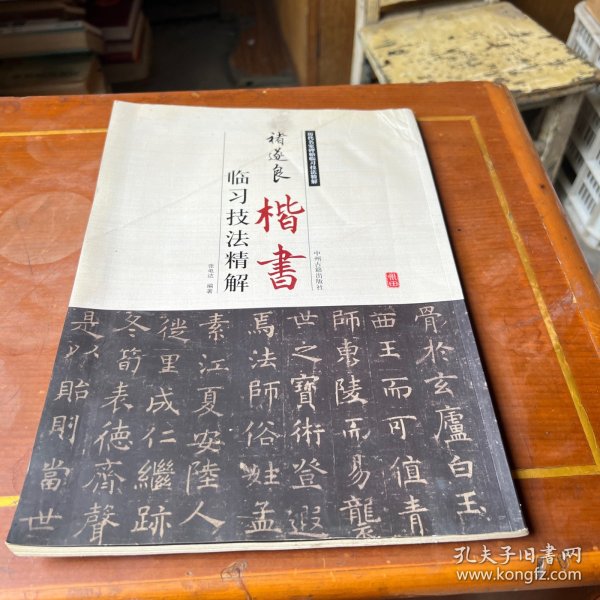 历代名家碑帖临习技法精解
褚遂良
楷書
临习技法精解
编著
中州古籍出版社
骨於玄廬白王
西王而可值青
師東陵而易襲
世之寶術登遐
焉法師俗姓孟
素江夏安陸人
徙里成仁繼跡
冬筍表德齊聲
是以貽則當世
孔夫子旧书网
www.kongfz.com